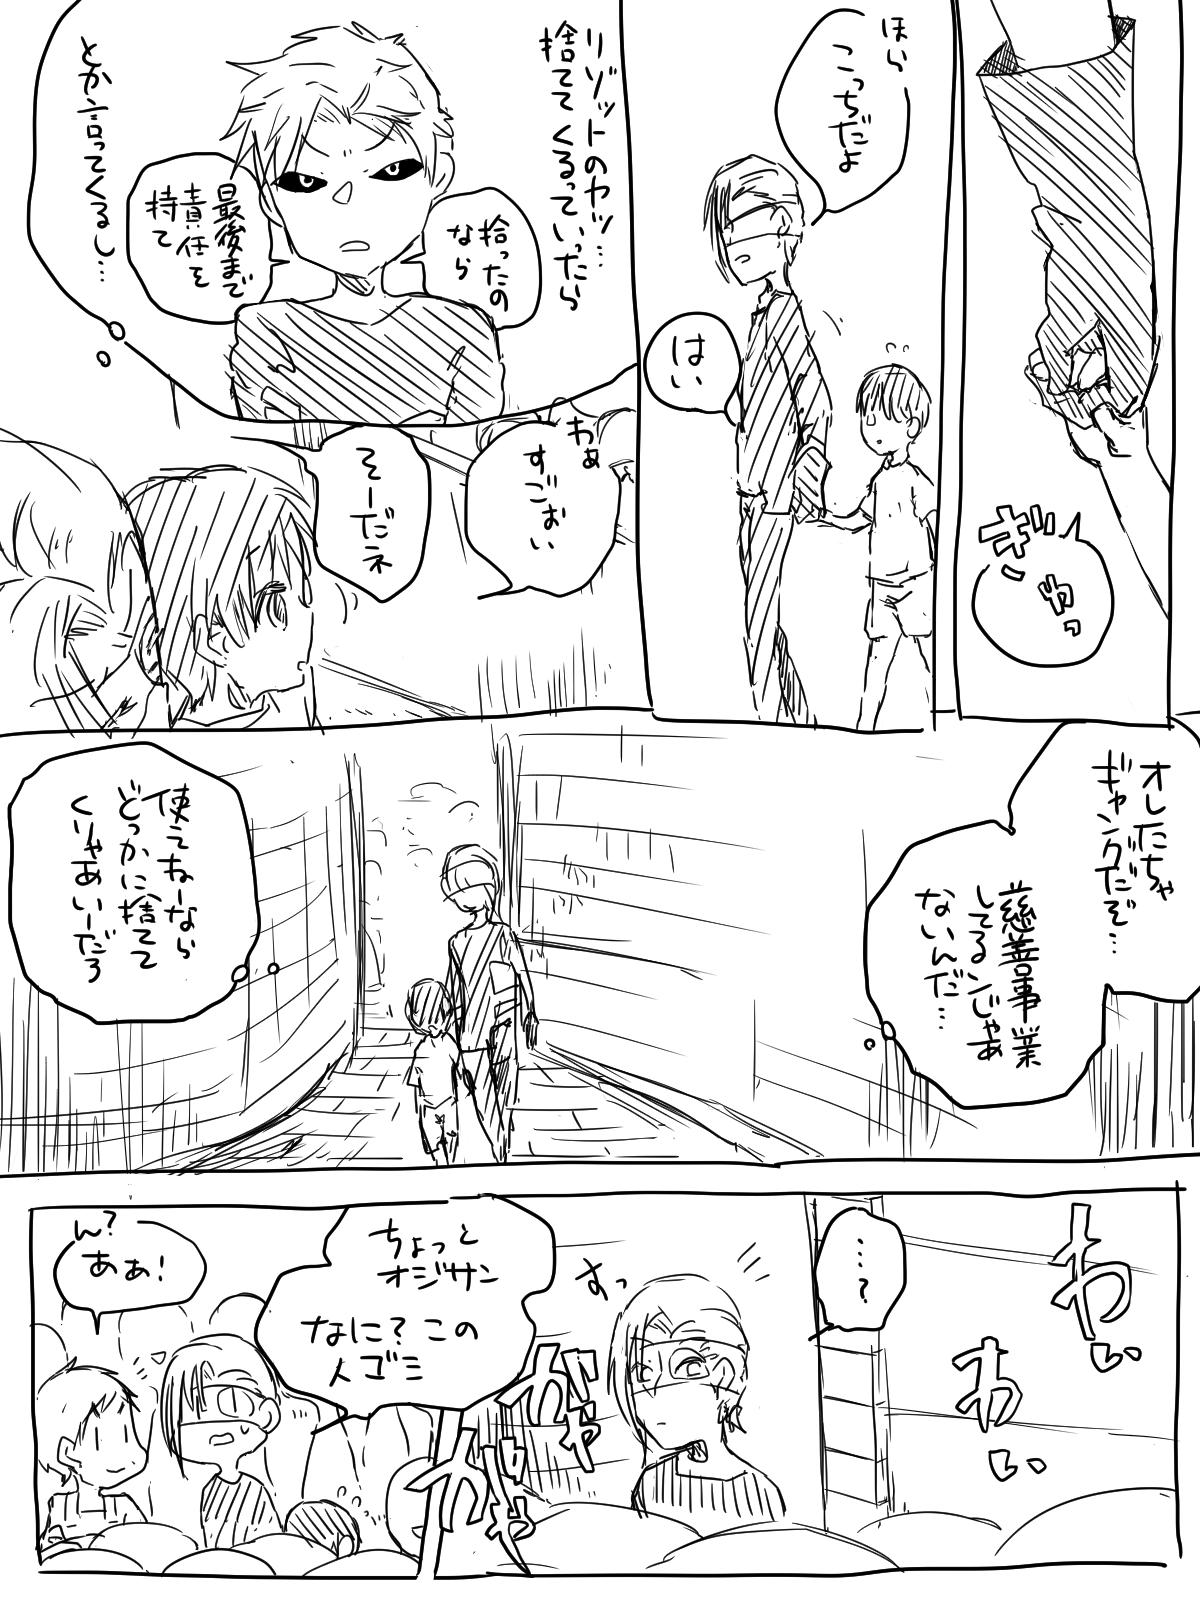 ぎゅっ
ほら
こっちだよ
はい
リゾットのヤツ…
捨ててくるっていったら
拾ったの
なら
最後まで
責任を
持て
とか言ってくるし…
わぁ
すごぉい
そーだネ
オレたちゃ
ギャングだぞ…
慈善事業
してるンじゃあ
ないんだ…
使えねーなら
どっかに捨てて
くりゃあいーだろ
わい
わい
…?
すっ
がや
がや
ちょっと
オジサン
なに?この
人ゴミ
ん?
ああ!